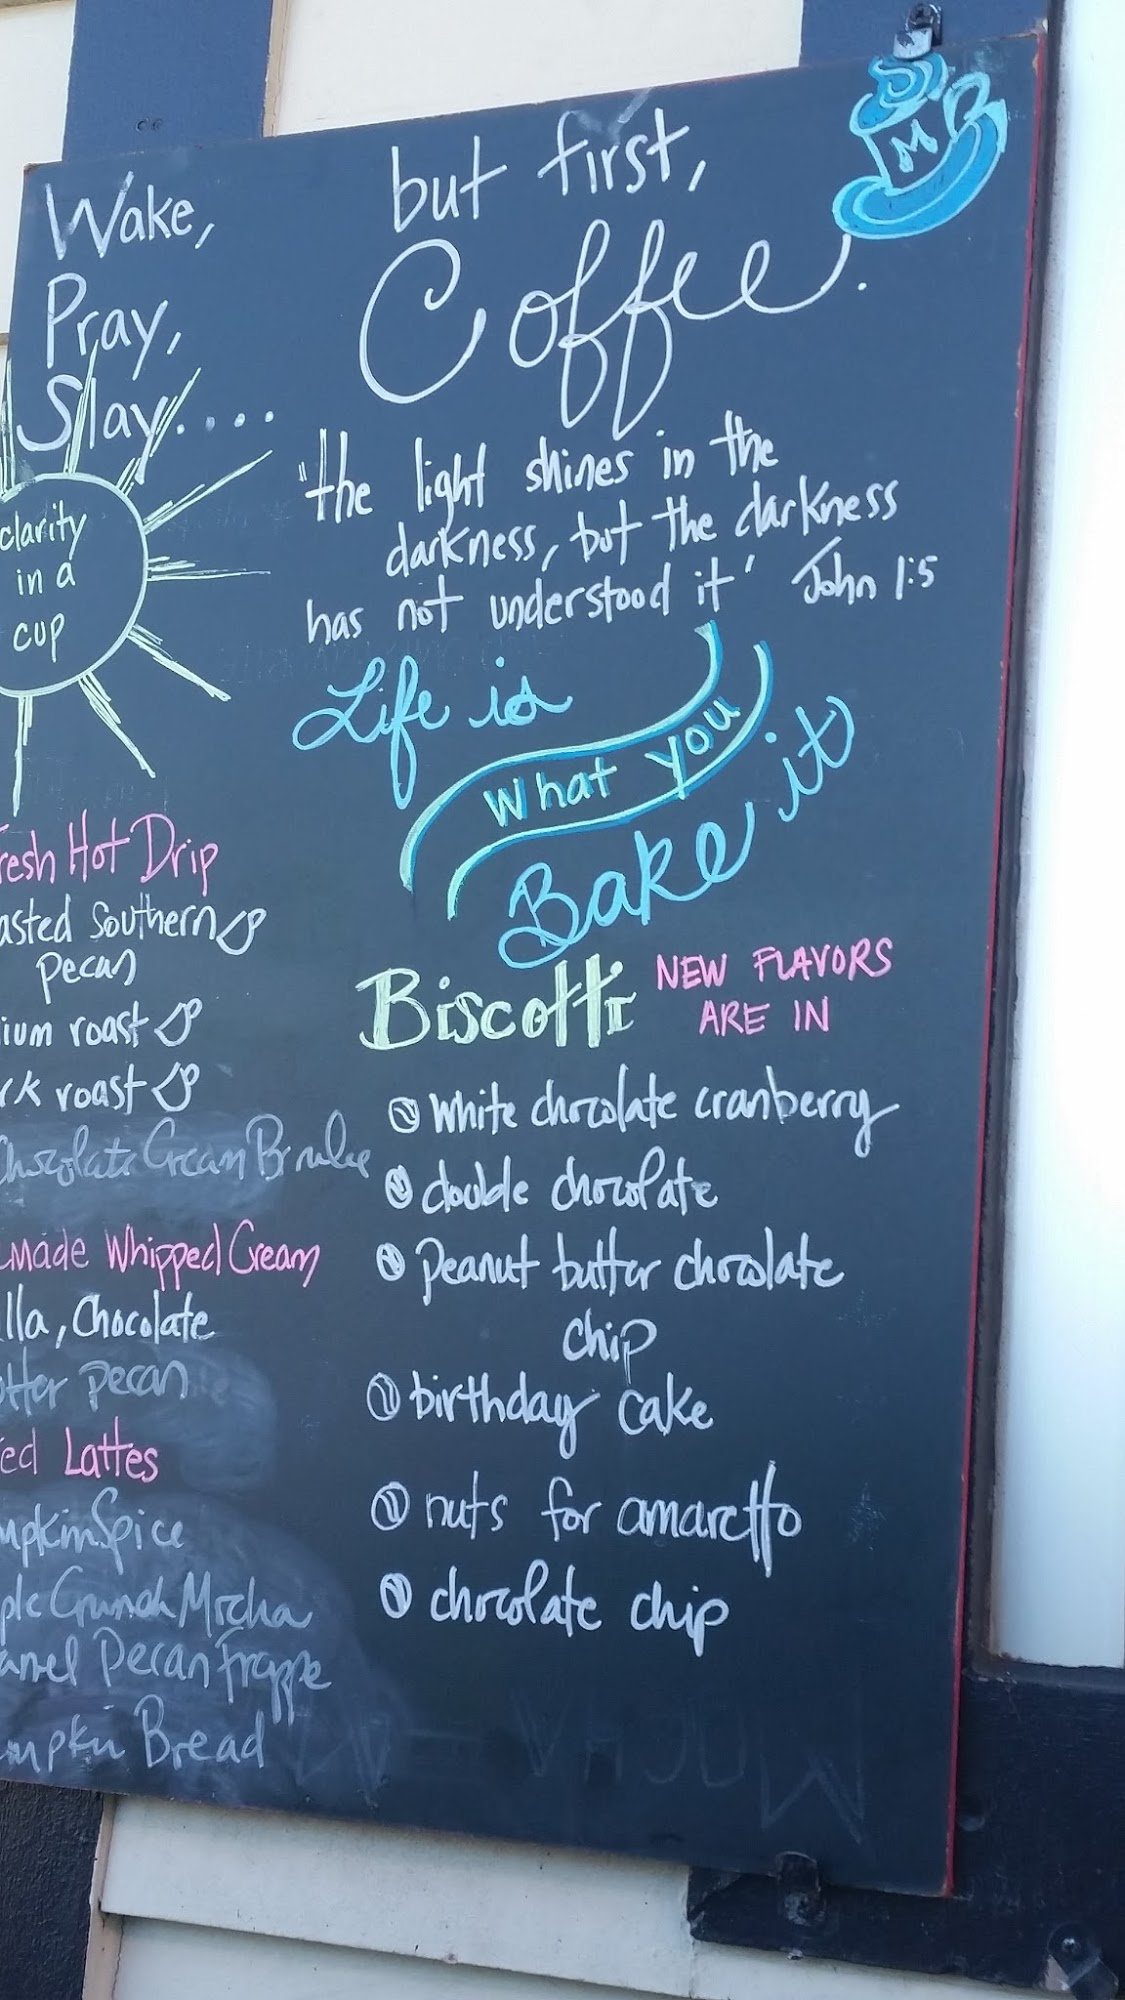 Wake,
Pray,
Slay....
clarity
in a
cup
but first,
Coffee.
M
"the light shines in the
darkness, but the darkness
has not understood it' John 1:5
Life is
What you
Bake it
resh Hot Drip
asted Southern
pecan
ium roast
rk roast
Chocolate Cream Brulee
made Whipped Cream
lla, Chocolate
tter pecan
ed Lattes
mpkin Spice
ple Crunch Mocha
amel Pecan frappe
mpkin Bread
Biscotti NEW FLAVORS
ARE IN
white chocolate cranberry
double chocolate
peanut butter chocolate
chip
birthday cake
nuts for amaretto
chocolate chip